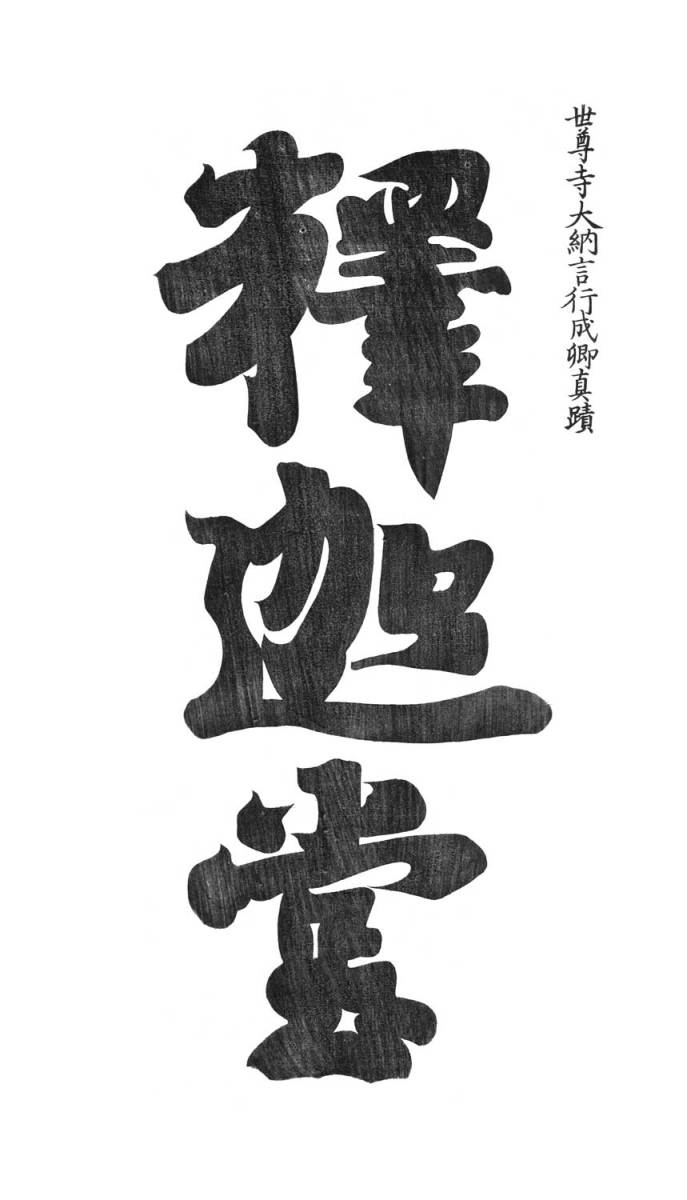 世尊寺大納言行成卿真蹟
釋迦堂